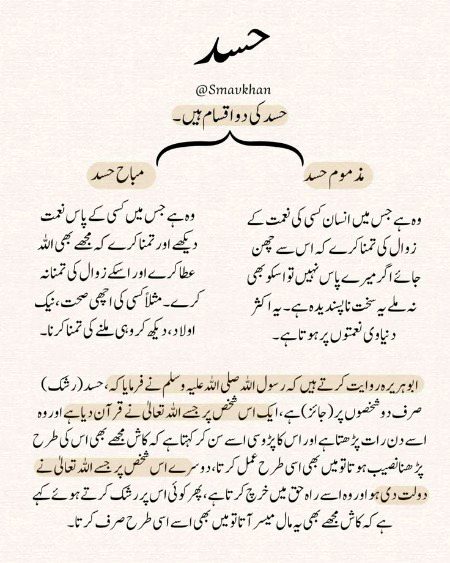 حسد
@Smavkhan
حسد کی دو اقسام ہیں۔
مذموم حسد
وہ ہے جس میں انسان کسی کی نعمت کے
زوال کی تمنا کرے کہ اس سے چھن
جائے اگر میرے پاس نہیں تو اسکو بھی
نہ ملے یہ سخت ناپسندیدہ ہے۔ یہ اکثر
دنیاوی نعمتوں پر ہوتا ہے۔
مباح حسد
وہ ہے جس میں کسی کے پاس نعمت
دیکھے اور تمنا کرے کہ مجھے بھی اللہ
عطا کرے اور اسکے زوال کی تمنا نہ
کرے۔ مثلاً کسی کی اچھی صحت، نیک
اولاد، دیکھ کر وہی ملنے کی تمنا کرنا۔
ابوہریرہ روایت کرتے ہیں کہ رسول اللہ صلی اللہ علیہ وسلم نے فرمایا کہ، حسد (رشک)
صرف دو شخصوں پر (جائز) ہے، ایک اس شخص پر جسے اللہ تعالیٰ نے قرآن دیا ہے اور وہ
اسے دن رات پڑھتا ہے اور اس کا پڑوسی اسے سن کر کہتا ہے کہ کاش مجھے بھی اس کی طرح
پڑھنا نصیب ہوتا تو میں بھی اسی طرح عمل کرتا، دوسرے اس شخص پر جسے اللہ تعالیٰ نے
دولت دی ہو اور وہ اسے راہ حق میں خرچ کرتا ہے، پھر کوئی اس پر رشک کرتے ہوئے کہے
ہے کہ کاش مجھے بھی یہ مال میسر آتا تو میں بھی اسے اسی طرح صرف کرتا۔